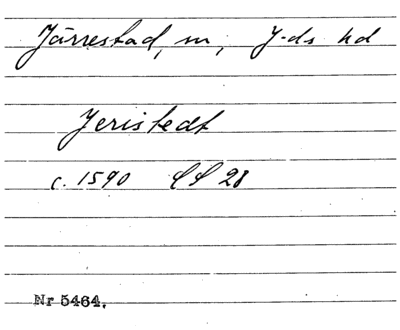 Järrestad, sn, J-ds hd
Jeristedt
c. 1590 LL 28
Nr 5464.